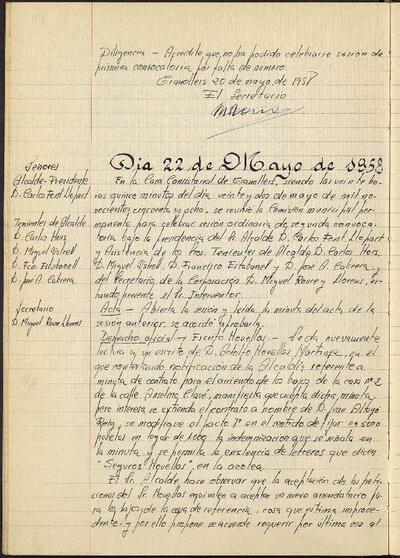 Diligencia — Acredito que, no ha podido celebrarse sesión de
primera convocatoria por falta de número.
Granollers 20 de mayo, de 1958
El Secretario
Señores
Alcalde-Presidente
D. Carlos Font Llopart
Tenientes de Alcalde
D. Carlos Hors
D. Miguel Vistrell
D. Fco. Estabanell
D. José A. Cabrera
Secretario
D. Miguel Roure Llorens
Dia 22 de Mayo de 1958
En la Casa Consistorial de Granollers, siendo las veinte ho-
ras quince minutos del día veinte y dos de mayo de mil no-
vecientos cincuenta y ocho, se reunió la Comisión municipal per-
manente para celebrar sesión ordinaria de segunda convoca-
toria bajo la presidencia del Sr. Alcalde D. Carlos Font Llopart
y Asistencia de los Sres. Tenientes de Alcalde D. Carlos Hors,
D. Miguel Vistrell, D. Francisco Estabanell y D. José A. Cabrera,
y del Secretario de la Corporación D. Miguel Roure y Llorens, es-
tando presente el Sr. Interventor.
Acta — Abierta la sesión y leída la minuta del acta de la
sesión anterior, se acordó aprobarla.
Despacho oficial — Escrito Novellas — Leído nuevamente
lectura a un escrito de D. Adolfo Novellas Martínez, en el
que contestando notificación de la Alcaldía, referente a
minuta de contrato para el arriendo de los bajos de la casa nº 2
de la calle Anselmo Clavé, manifiesta que acepta dicha minuta
pero interesa se extienda el contrato a nombre de D. Juan
se modifique el pacto 7º en el sentido de fijar en
pesetas en lugar de 1.000 la indemnización que se señala en
la minuta y se permita la existencia de letreros que dicen
"Seguros Novellas", en la azotea.
El Sr. Alcalde hace observar que la aceptación de las peti-
ciones del Sr. Novellas equivalen a aceptar un nuevo arrendatario pa-
ra los bajos de la casa de referencia, cosa que estima improce-
dente y por ello propone se acuerde requerir por última vez al